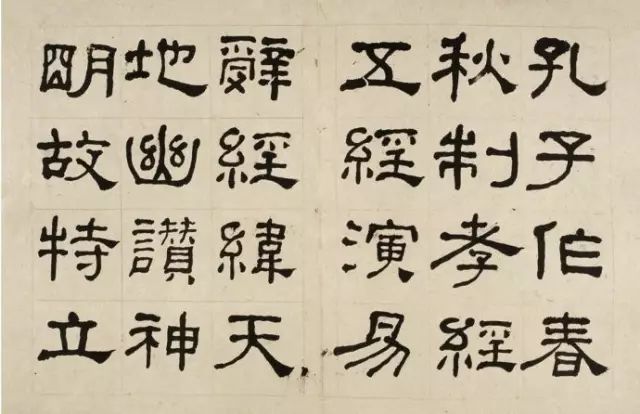 孔子作春
秋制孝經
五經演易
辤經緯天
地幽讃神
明故特立